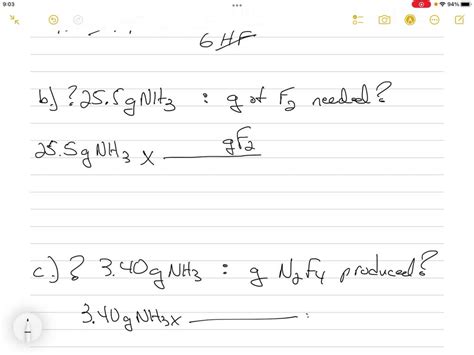 9:03
94%
6 HF
b.) ? 25.5g NH3 : g of F2 needed?
gF2
25.5g NH3 x
c.) ? 3.40g NH3 : g N2F4 produced?
3.40g NH3 x :